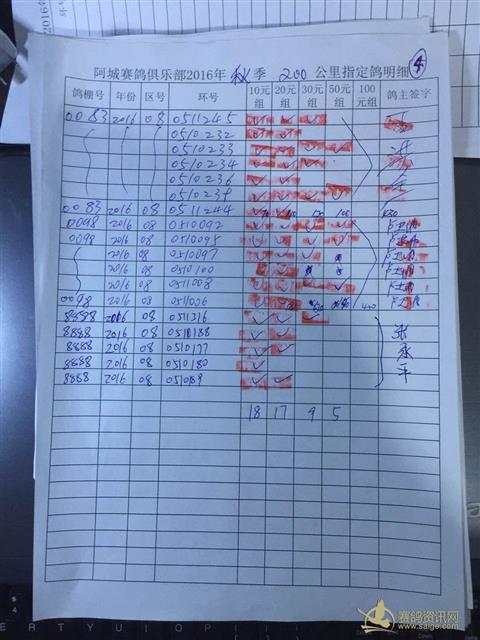 阿城赛鸽俱乐部2016年 秋 季 200 公里指定鸽明细 4
鸽棚号 年份 区号 环号 10元组 20元组 30元组 50元组 100元组 鸽主签字
0083 2016 08 0511245
0510232
0510233
0510234
0510236
0510238
0083 2016 08 0511244
0098 2016 08 0510092
0098 2016 08 0510095
2016 08 0510097
2016 08 0510100
2016 08 0511008
0098 2016 08
8888 2016 08 0511316
8888 2016 08 0510188
8888 2016 08 0510177
8888 2016 08 0510180
8888 2016 08
18 17 9 5
赛鸽资讯网
www.saige.com